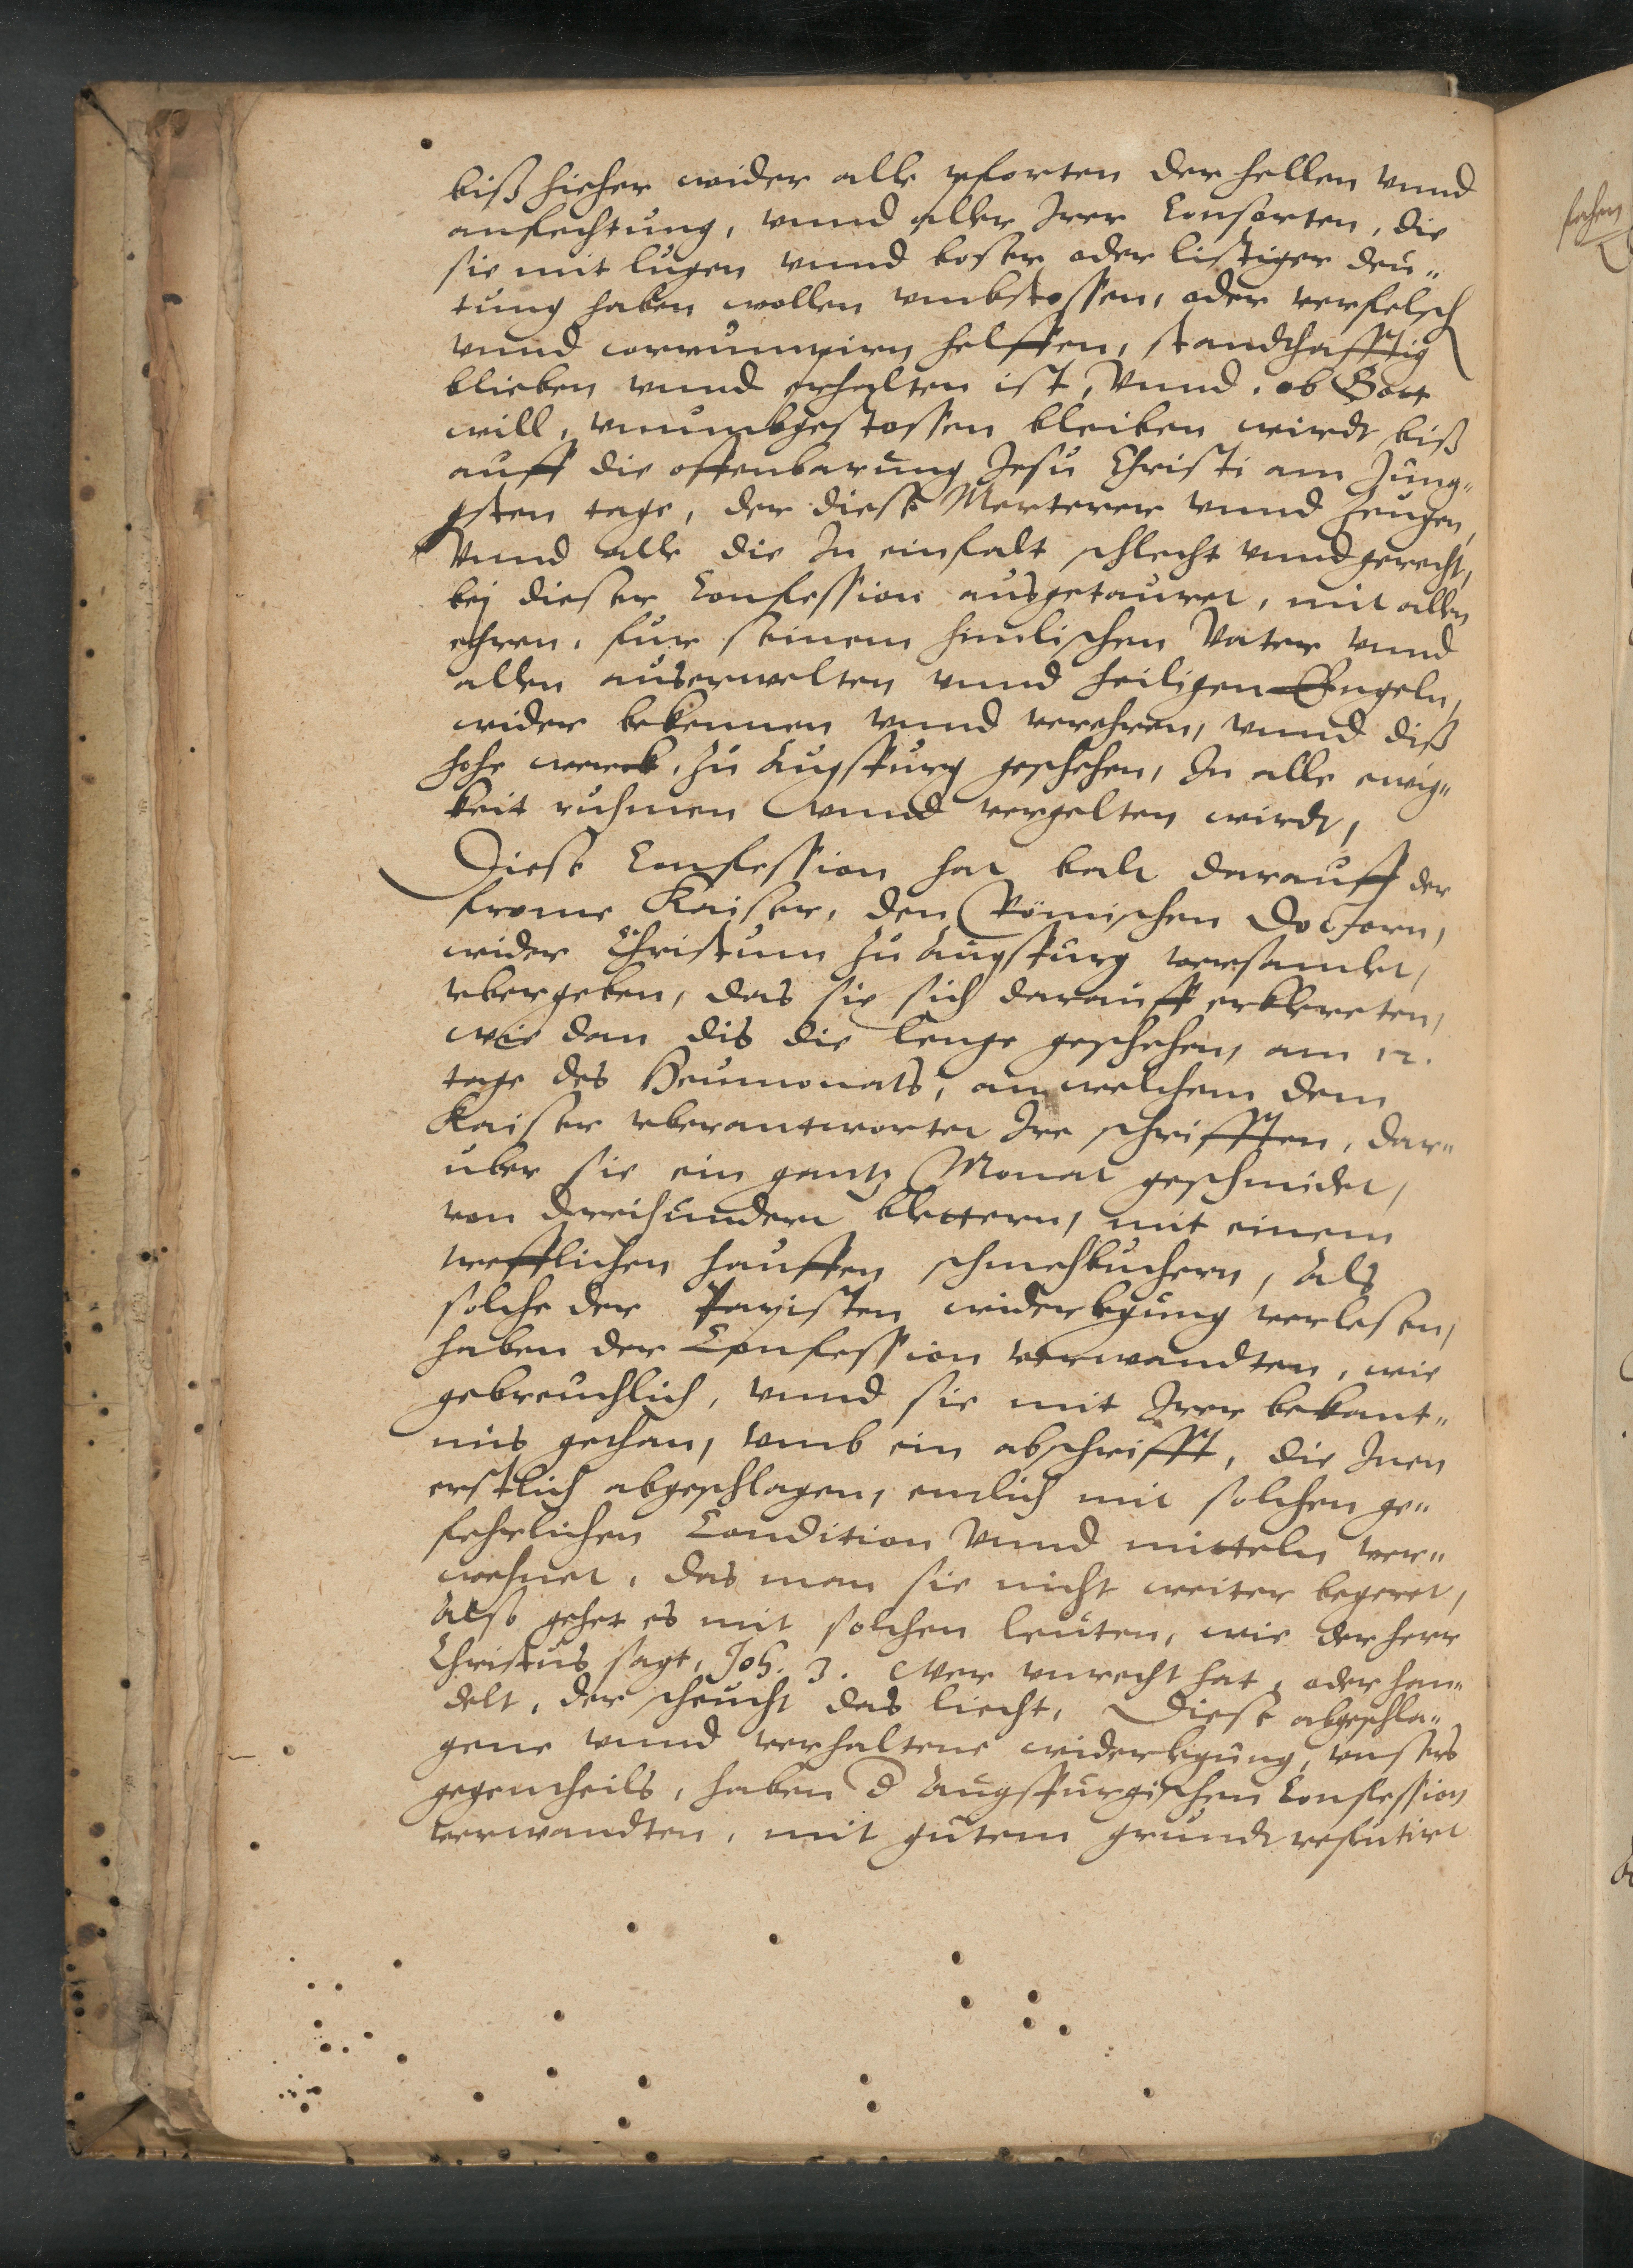 biß hieher wider alle pforten der hellen vnnd
anfechtung, vnnd aller Irer Consorten, die
sie mit lugen vnnd boser oder listiger deu„
tung haben wollen vmbstossen, oder verfelsch
vnnd corrumpirn helffen, standthafftig
blieben vnnd erhalten ist, Vnnd, ob Gott
will, vnumbgestossen bleiben wirdt biß
auff die offenbarung Jesu Christi am Jung„
gsten tage, der diese Merterer vnnd zeugen,
Vnnd alle die In einfalt schlecht vnnd gerecht,
bej dieser Confession ausgetauret, mit allen
ehren, fur seinem himlischen Vater vnnd
allen auserwelten vnnd heiligen Engeln,
wider bekennen vnnd verehren, vnnd diß
hohe werck, zu Augspurg geschehen, In alle ewig„
keit ruhmen vnnd vergelten wirdt,
Diese Confession hat balt darauff der
frome Kaiser, den Römischen Doctorn,
wider Christum zu Augspurg versamlet,
vbergeben, das sie sich darauff erklereten,
wie dan dis die lenge geschehen, am 12.
tage des Heumonats, an welchem dem
Kaiser vberantwortet Ire schrifften, dar„
uber sie ein gantz Monat geschmidet,
von dreihundert blettern, mit einem
trefflichen hauffen schmehbuchern, Als
solche der Papisten widerlegung verlesen,
haben der Confession verwandten, wie
gebreuchlich, vnnd sie mit Irer bekant„
nis gethan, vmb ein abschrifft, die Inen
erstlich abgeschlagen, entlich mit solchen ge„
fehrlichen Condition Vnnd mitteln ver„
wehnet, das man sie nicht weiter begeret,
Also gehet es mit solchen leuten, wie der herr
Christus sagt, Joh. 3. Wer vnrecht hat, oder han„
delt, der scheucht das liecht, Diese abgeschla„
gene vnnd verhaltene widerlegung, vnsers
gegentheils, haben d Augspurgischen Confession
verwandten, mit gutem grundt refutirt